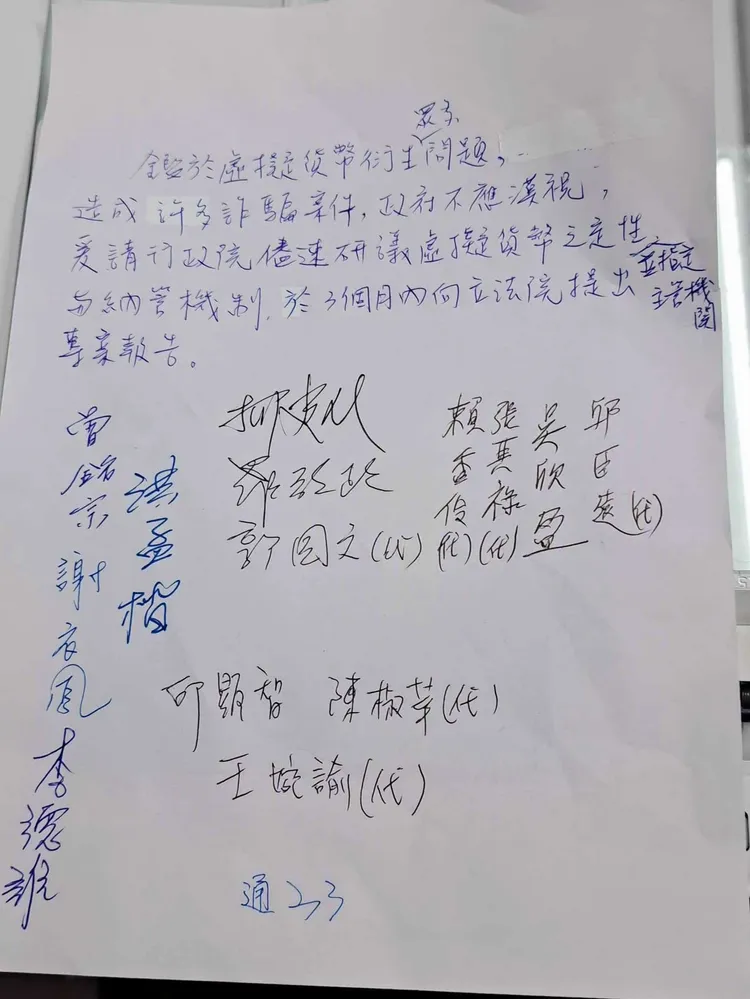 眾多
鑑於虛擬貨幣衍生問題,
造成許多詐騙案件,政府不應漠視,
爰請行政院儘速研議虛擬貨幣之定性
並指定
主管機
關
與納管機制,於3個月內向立法院提出
專案報告。
曾銘宗
洪孟楷
謝衣鳳
李德維
羅致政
郭国文(代)
賴香伶(代)
張其祿(代)
吳欣盈
邱臣遠(代)
邱顯智 陳椒華(代)
王婉諭(代)
通223